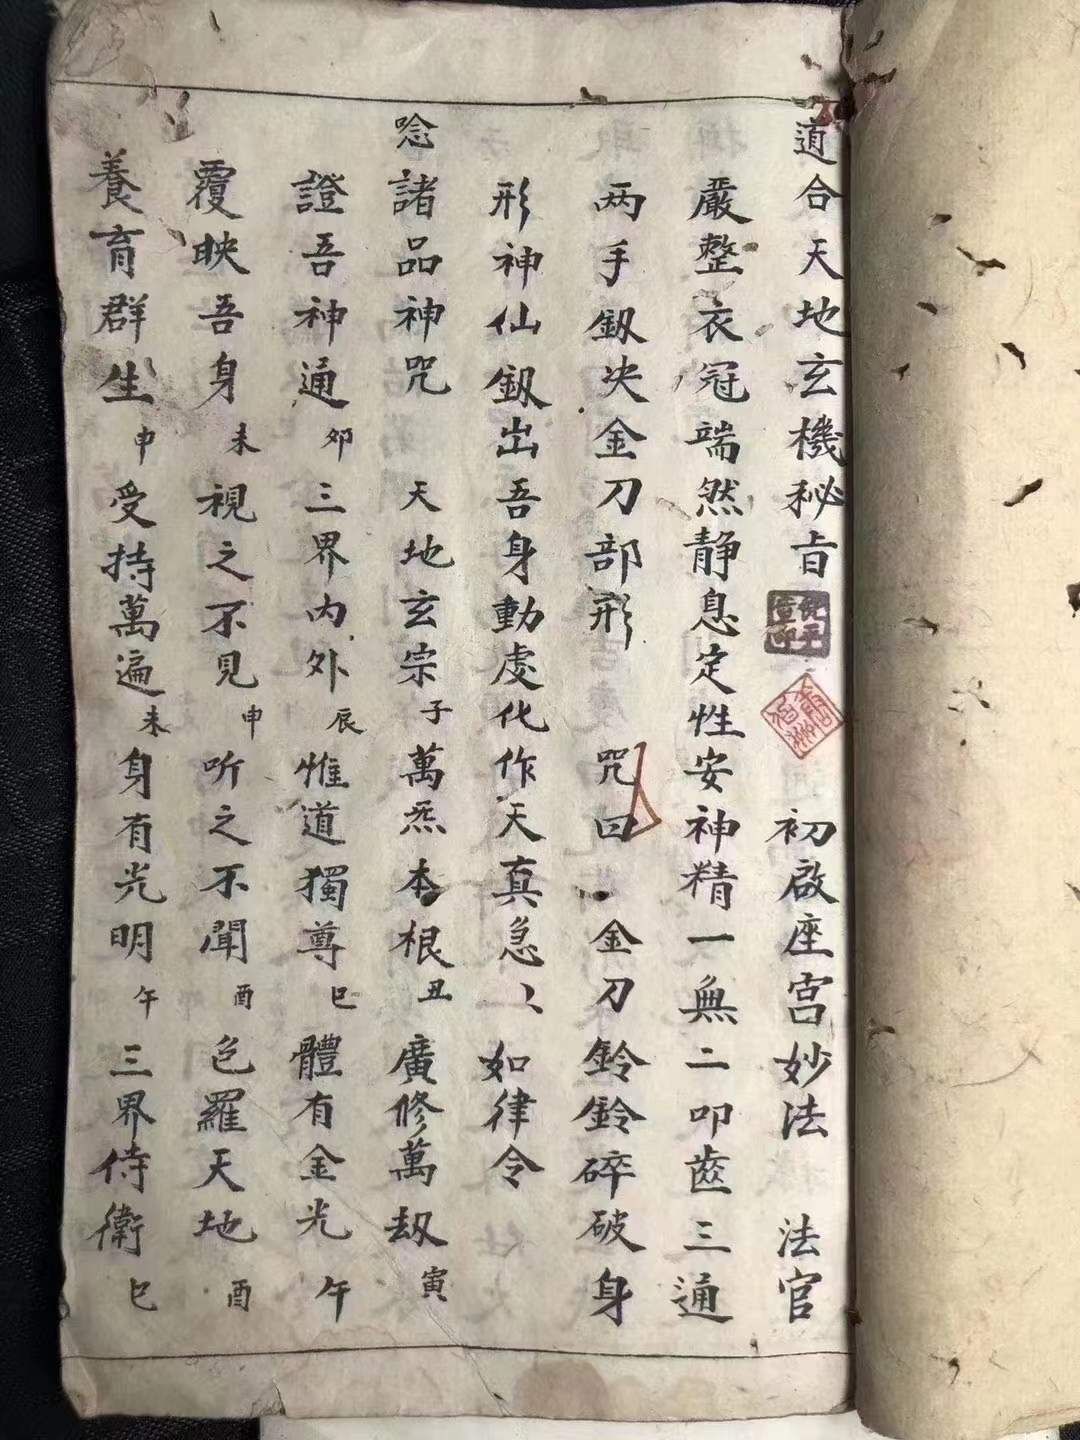 道合天地玄機秘旨 初啟座宮妙法 法官
嚴整衣冠端然靜息定性安神精一無二叩齒三通
两手釼决金刀部形 咒曰 金刀鈴鈴碎破身
形神仙釼出吾身動處化作天真急、、如律令
唸諸品神咒 天地玄宗子萬炁本根丑廣修萬劫寅
證吾神通卯三界內外辰惟道獨尊巳體有金光午
覆映吾身未視之不見申听之不聞酉包羅天地酉
養育群生申受持萬遍未身有光明午三界侍衛巳